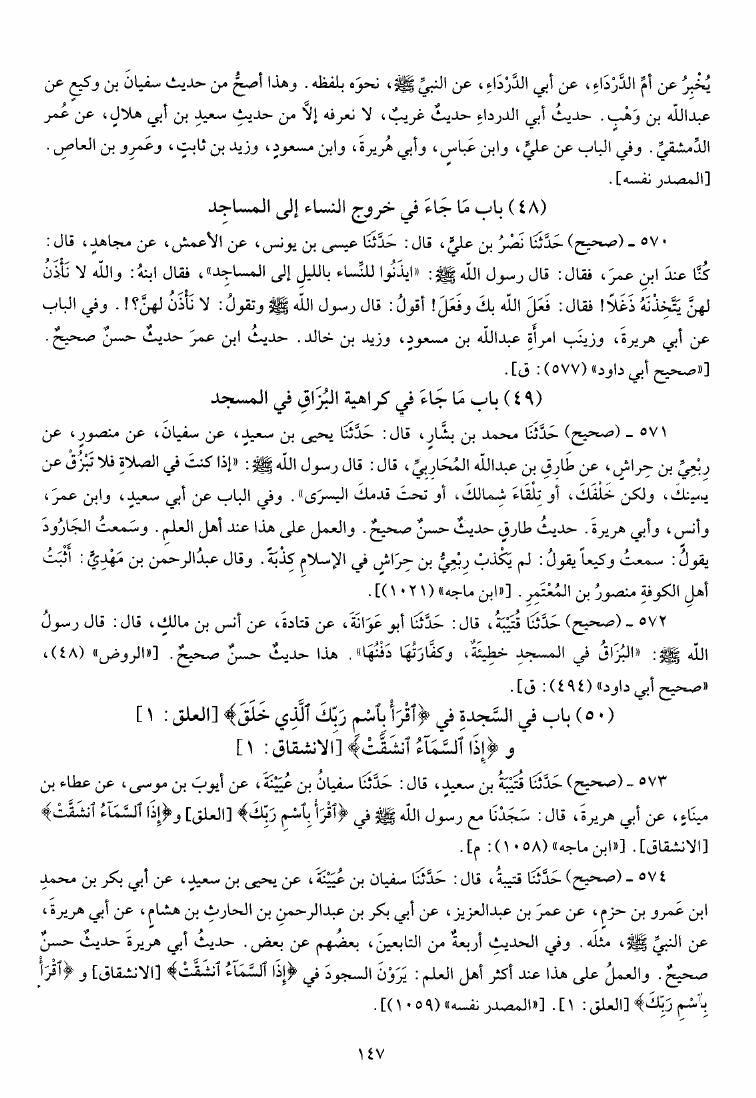 يُخْبِرُ عن أمِّ الدَّرْدَاءِ، عن أبي الدَّرْدَاءِ، عن النبيِّ ﷺ، نحوَه بلفظه. وهذا أصحُّ من حديث سفيانَ بن وكيعٍ عن
عبدالله بن وَهْبٍ. حديثُ أبي الدرداءِ حديثٌ غريبٌ، لا نعرفه إلاَّ من حديثِ سعيدِ بن أبي هلالٍ، عن عُمر
الدِّمشقيِّ. وفي الباب عن عليٍّ، وابن عَباسٍ، وأبي هُريرةَ، وابن مسعودٍ، وزيد بن ثابتٍ، وعَمرِو بن العاصِ.
[المصدر نفسه].
(٤٨) باب مَا جَاءَ في خروج النساء إلى المساجِد
٥٧٠ ـ (صحيح) حَدَّثَنَا نَصْرُ بن عليٍّ، قال: حَدَّثَنَا عيسى بن يونس، عن الأعمش، عن مجاهدٍ، قال:
كُنَّا عندَ ابنِ عمرَ، فقال: قال رسول الله ﷺ: «ايذَنُوا للنِّساء بالليلِ إلى المساجِد»، فقال ابنهُ: والله لا نَأْذَنُ
لهنَّ يَتَّخِذْنَهُ دَغَلاً! فقال: فَعَلَ الله بكَ وفَعَلَ! أقولُ: قال رسول الله ﷺ وتقولُ: لا نَأْذَنُ لهنَّ؟!. وفي الباب
عن أبي هريرةَ، وزينَب امرأَةِ عبدالله بن مسعودٍ، وزيد بن خالد. حديثُ ابن عمرَ حديثٌ حسنٌ صحيحٌ.
[«صحيح أبي داود» (٥٧٧): ق].
(٤٩) باب مَا جَاءَ في كراهية البُزَاقِ في المسجد
٥٧١ ـ (صحيح) حَدَّثَنَا محمد بن بشَّارٍ، قال: حَدَّثَنَا يحيى بن سعيدٍ، عن سفيانَ، عن منصورٍ، عن
رِبْعِيِّ بن حِراشٍ، عن طَارِقِ بن عبدالله المُحَارِبِيِّ، قال: قال رسول الله ﷺ: «إذا كنتَ في الصلاةِ فلا تَبْزُقْ عن
يمينكَ، ولكن خَلْفَكَ، أو تِلْقَاءَ شِمالكَ، أو تحتَ قدمكَ اليسرَى». وفي الباب عن أبي سعيدٍ، وابن عمرَ،
وأنسٍ، وأبي هريرةَ. حديثُ طارقٍ حديثٌ حسنٌ صحيحٌ. والعمل على هذا عند أهل العلمِ. وسَمعتُ الجَارُودَ
يقولُ: سمعتُ وكيعاً يقولُ: لم يَكْذبْ رِبْعِيُّ بن حِرَاشٍ في الإسلامِ كِذْبَةً. وقال عبدُالرحمن بن مَهْدِيٍّ: أَثْبَتُ
أهلِ الكوفةِ منصورُ بن المُعْتَمِرِ. [«ابن ماجه» (١٠٢١)].
٥٧٢ ـ (صحيح) حَدَّثَنَا قُتَيْبَةُ، قال: حَدَّثَنَا أبو عَوَانَةَ، عن قتادةَ، عن أنس بن مالكٍ، قال: قال رسولُ
الله ﷺ: «البُزَاقُ في المسجدِ خطِيئَةٌ، وكفَّارَتُهَا دَفْنُهَا». هذا حديثٌ حسنٌ صحيحٌ. [«الروض» (٤٨)،
«صحيح أبي داود» (٤٩٤): ق].
(٥٠) باب في السَّجدةِ في ﴿ٱقْرَأْ بِٱسْمِ رَبِّكَ ٱلَّذِي خَلَقَ﴾ [العلق: ١]
و ﴿إِذَا ٱلسَّمَآءُ ٱنشَقَّتْ﴾ [الانشقاق: ١]
٥٧٣ ـ (صحيح) حَدَّثَنَا قُتَيْبَةُ بن سعيدٍ، قال: حَدَّثَنَا سفيانُ بن عُيَيْنَةَ، عن أيوبَ بن موسى، عن عطاء بن
ميناءٍ، عن أبي هريرةَ، قال: سَجَدْنَا مع رسول الله ﷺ في ﴿ٱقْرَأْ بِٱسْمِ رَبِّكَ﴾ [العلق] و﴿إِذَا ٱلسَّمَآءُ ٱنشَقَّتْ﴾
[الانشقاق]. [«ابن ماجه» (١٠٥٨): م].
٥٧٤ ـ (صحيح) حَدَّثَنَا قتيبةُ، قال: حَدَّثَنَا سفيان بن عُيَيْنَةَ، عن يحيى بن سعيدٍ، عن أبي بكر بن محمدِ
ابن عَمرو بن حزمٍ، عن عمرَ بن عبدالعزيز، عن أبي بكر بن عبدالرحمنِ بن الحارثِ بن هشامٍ، عن أبي هريرةَ،
عن النبيِّ ﷺ، مثلَه. وفي الحديثِ أربعةٌ من التابعينَ، بعضُهم عن بعض. حديثُ أبي هريرةَ حديثٌ حسنٌ
صحيحٌ. والعملُ على هذا عند أكثر أهل العلم: يَرَوْنَ السجودَ في ﴿إِذَا ٱلسَّمَآءُ ٱنشَقَّتْ﴾ [الانشقاق] و ﴿ٱقْرَأْ
بِٱسْمِ رَبِّكَ﴾ [العلق: ١]. [«المصدر نفسه» (١٠٥٩)].
١٤٧